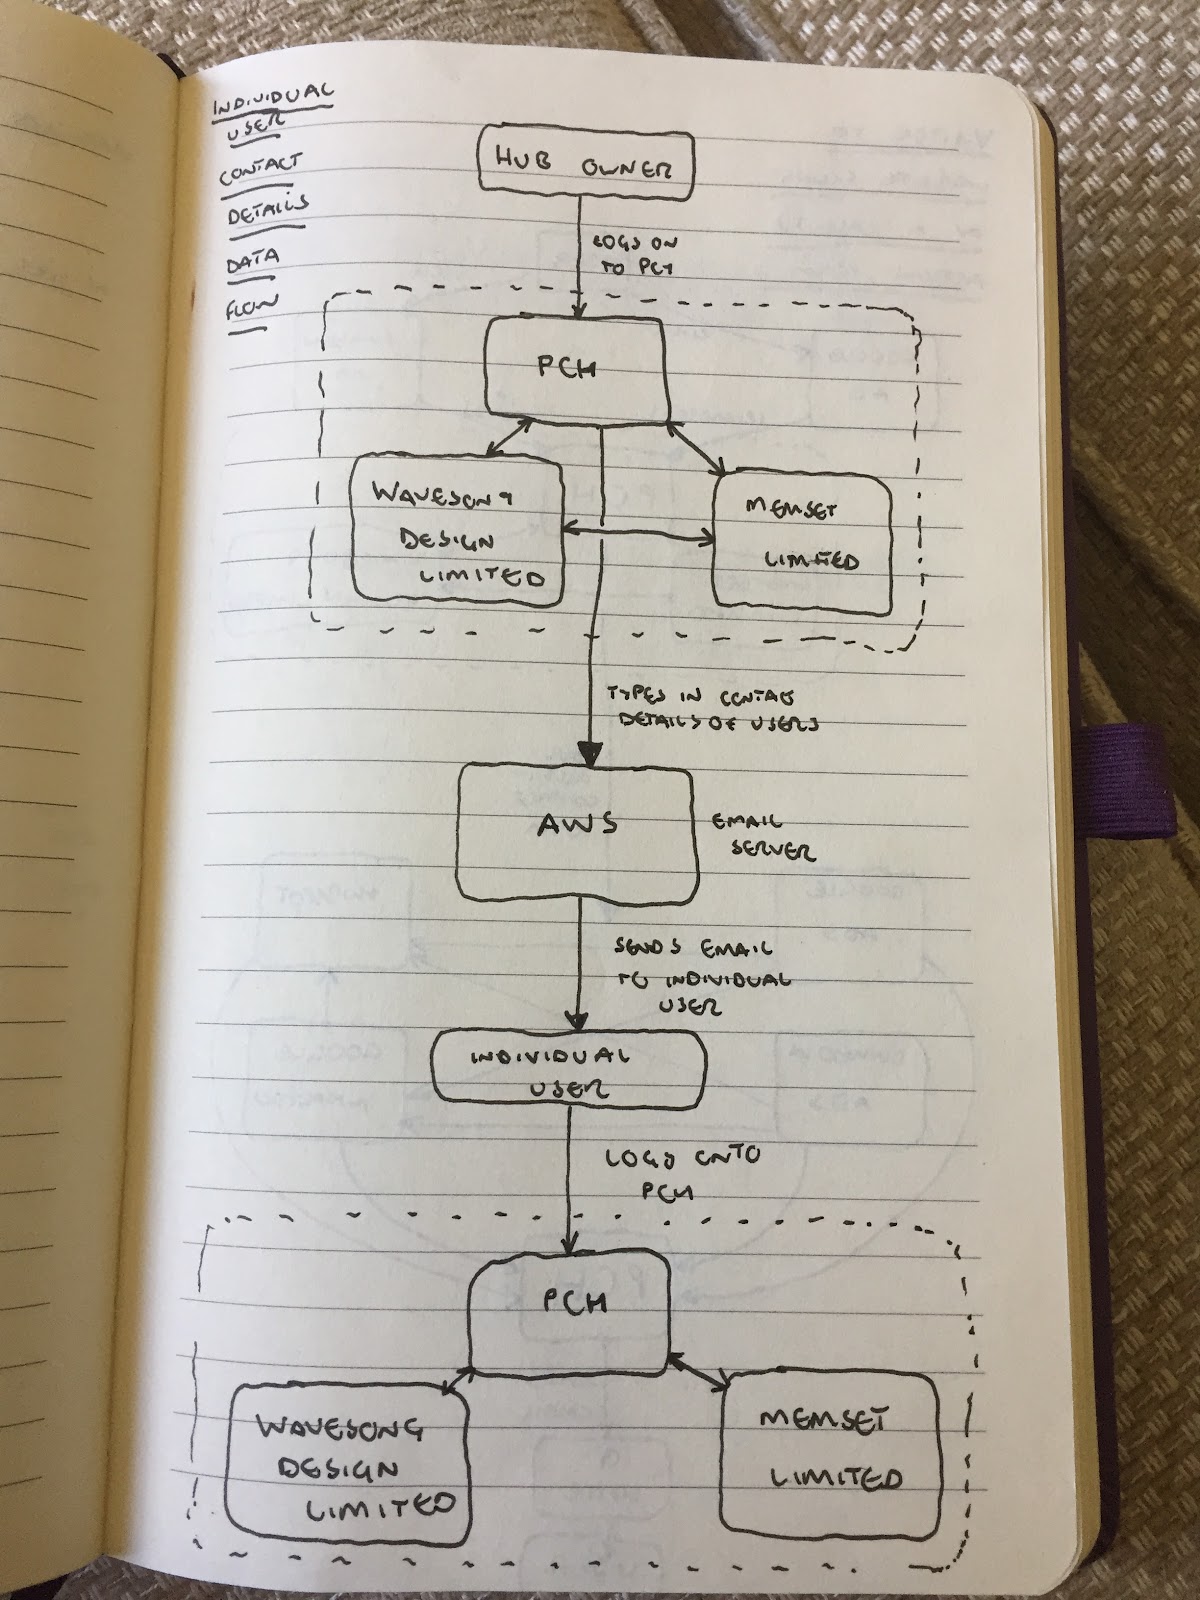 INDIVIDUAL
USER
CONTACT
DETAILS
DATA
FLOW
HUB OWNER
LOGS ON
TO PCH
PCH
WAVESONG
DESIGN
LIMITED
MEMSET
LIMITED
TYPES IN CONTACT
DETAILS OF USERS
AWS
EMAIL
SERVER
SENDS EMAIL
TO INDIVIDUAL
USER
INDIVIDUAL
USER
LOGS ONTO
PCH
PCH
WAVESONG
DESIGN
LIMITED
MEMSET
LIMITED